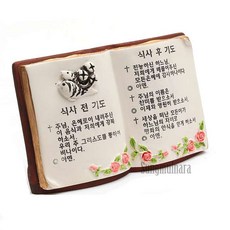 식사 전 기도
✝ 주님, 은혜로이 내려주신
이 음식과 저희에게 강복
하소서.
우리 주 그리스도를 통하여
비나이다.
◎ 아멘.
식사 후 기도
✝ 전능하신 하느님,
저희에게 베풀어주신
모든은혜에 감사하나이다
◎ 아멘.
✝ 주님의 이름은
찬미를 받으소서
◎ 이제와 영원히 받으소서.
✝ 세상을 떠난 모든이가
하느님의 자비로
평화의 안식을 얻게 하소서
◎ 아멘.